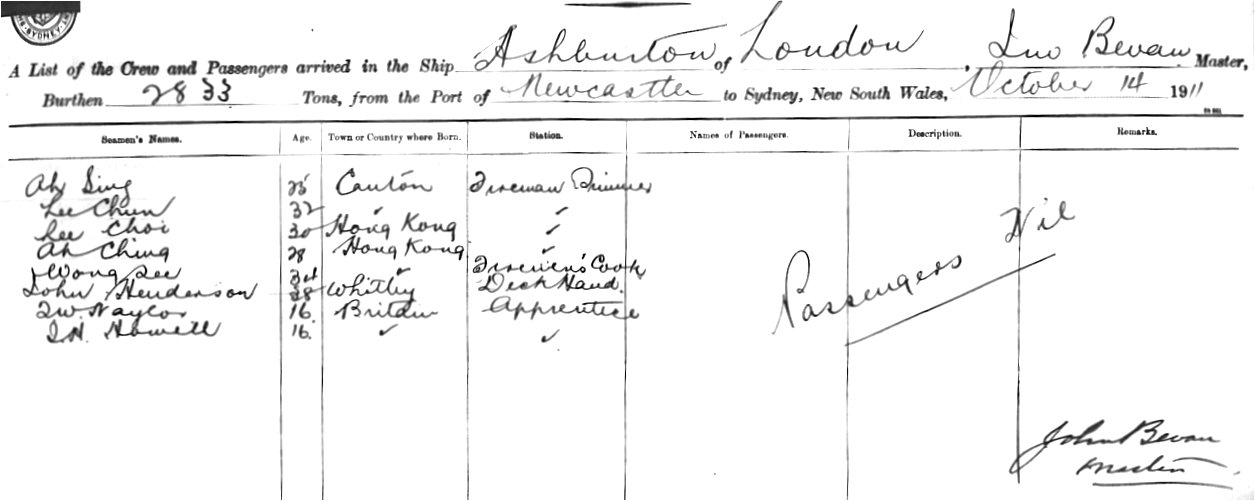 SYDNEY
A List of the Crew and Passengers arrived in the Ship Ashburton of London, Jno Bevan Master,
Burthen 2833 Tons, from the Port of Newcastle to Sydney, New South Wales, October 14 1911
Seamen's Names. Age. Town or Country where Born. Station. Names of Passengers. Description. Remarks.
Ah Sing 25 Canton Fireman Trimmer
Lee Chun 32 ✓ ✓
Lee Choi 30 Hong Kong ✓
Ah Ching 28 Hong Kong ✓
Wong See ✓ Firemen's Cook
John Henderson 38 Whitby Deck Hand.
Naylor 16. Britain Apprentice
Howell 16. ✓ ✓
Passengers Nil
John Bevan
Master